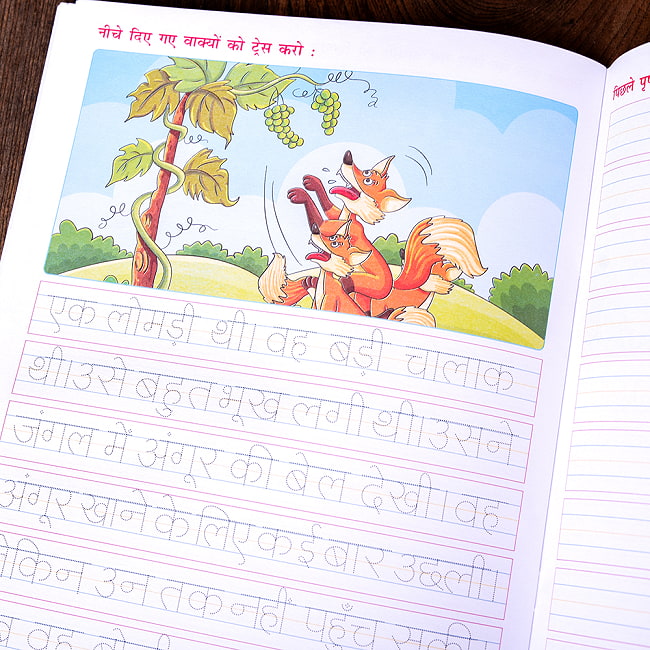 नीचे दिए गए वाक्यों को ट्रेस करो :
पिछले पृष्
एक लोमड़ी थी। वह बड़ी चालाक
थी। उसे बहुत भूख लगी थी। उसने
जंगल में अंगूर की बेल देखी। वह
अंगूर खाने के लिए कई बार उछली।
लेकिन उन तक नहीं पहुँच सकी।
वह